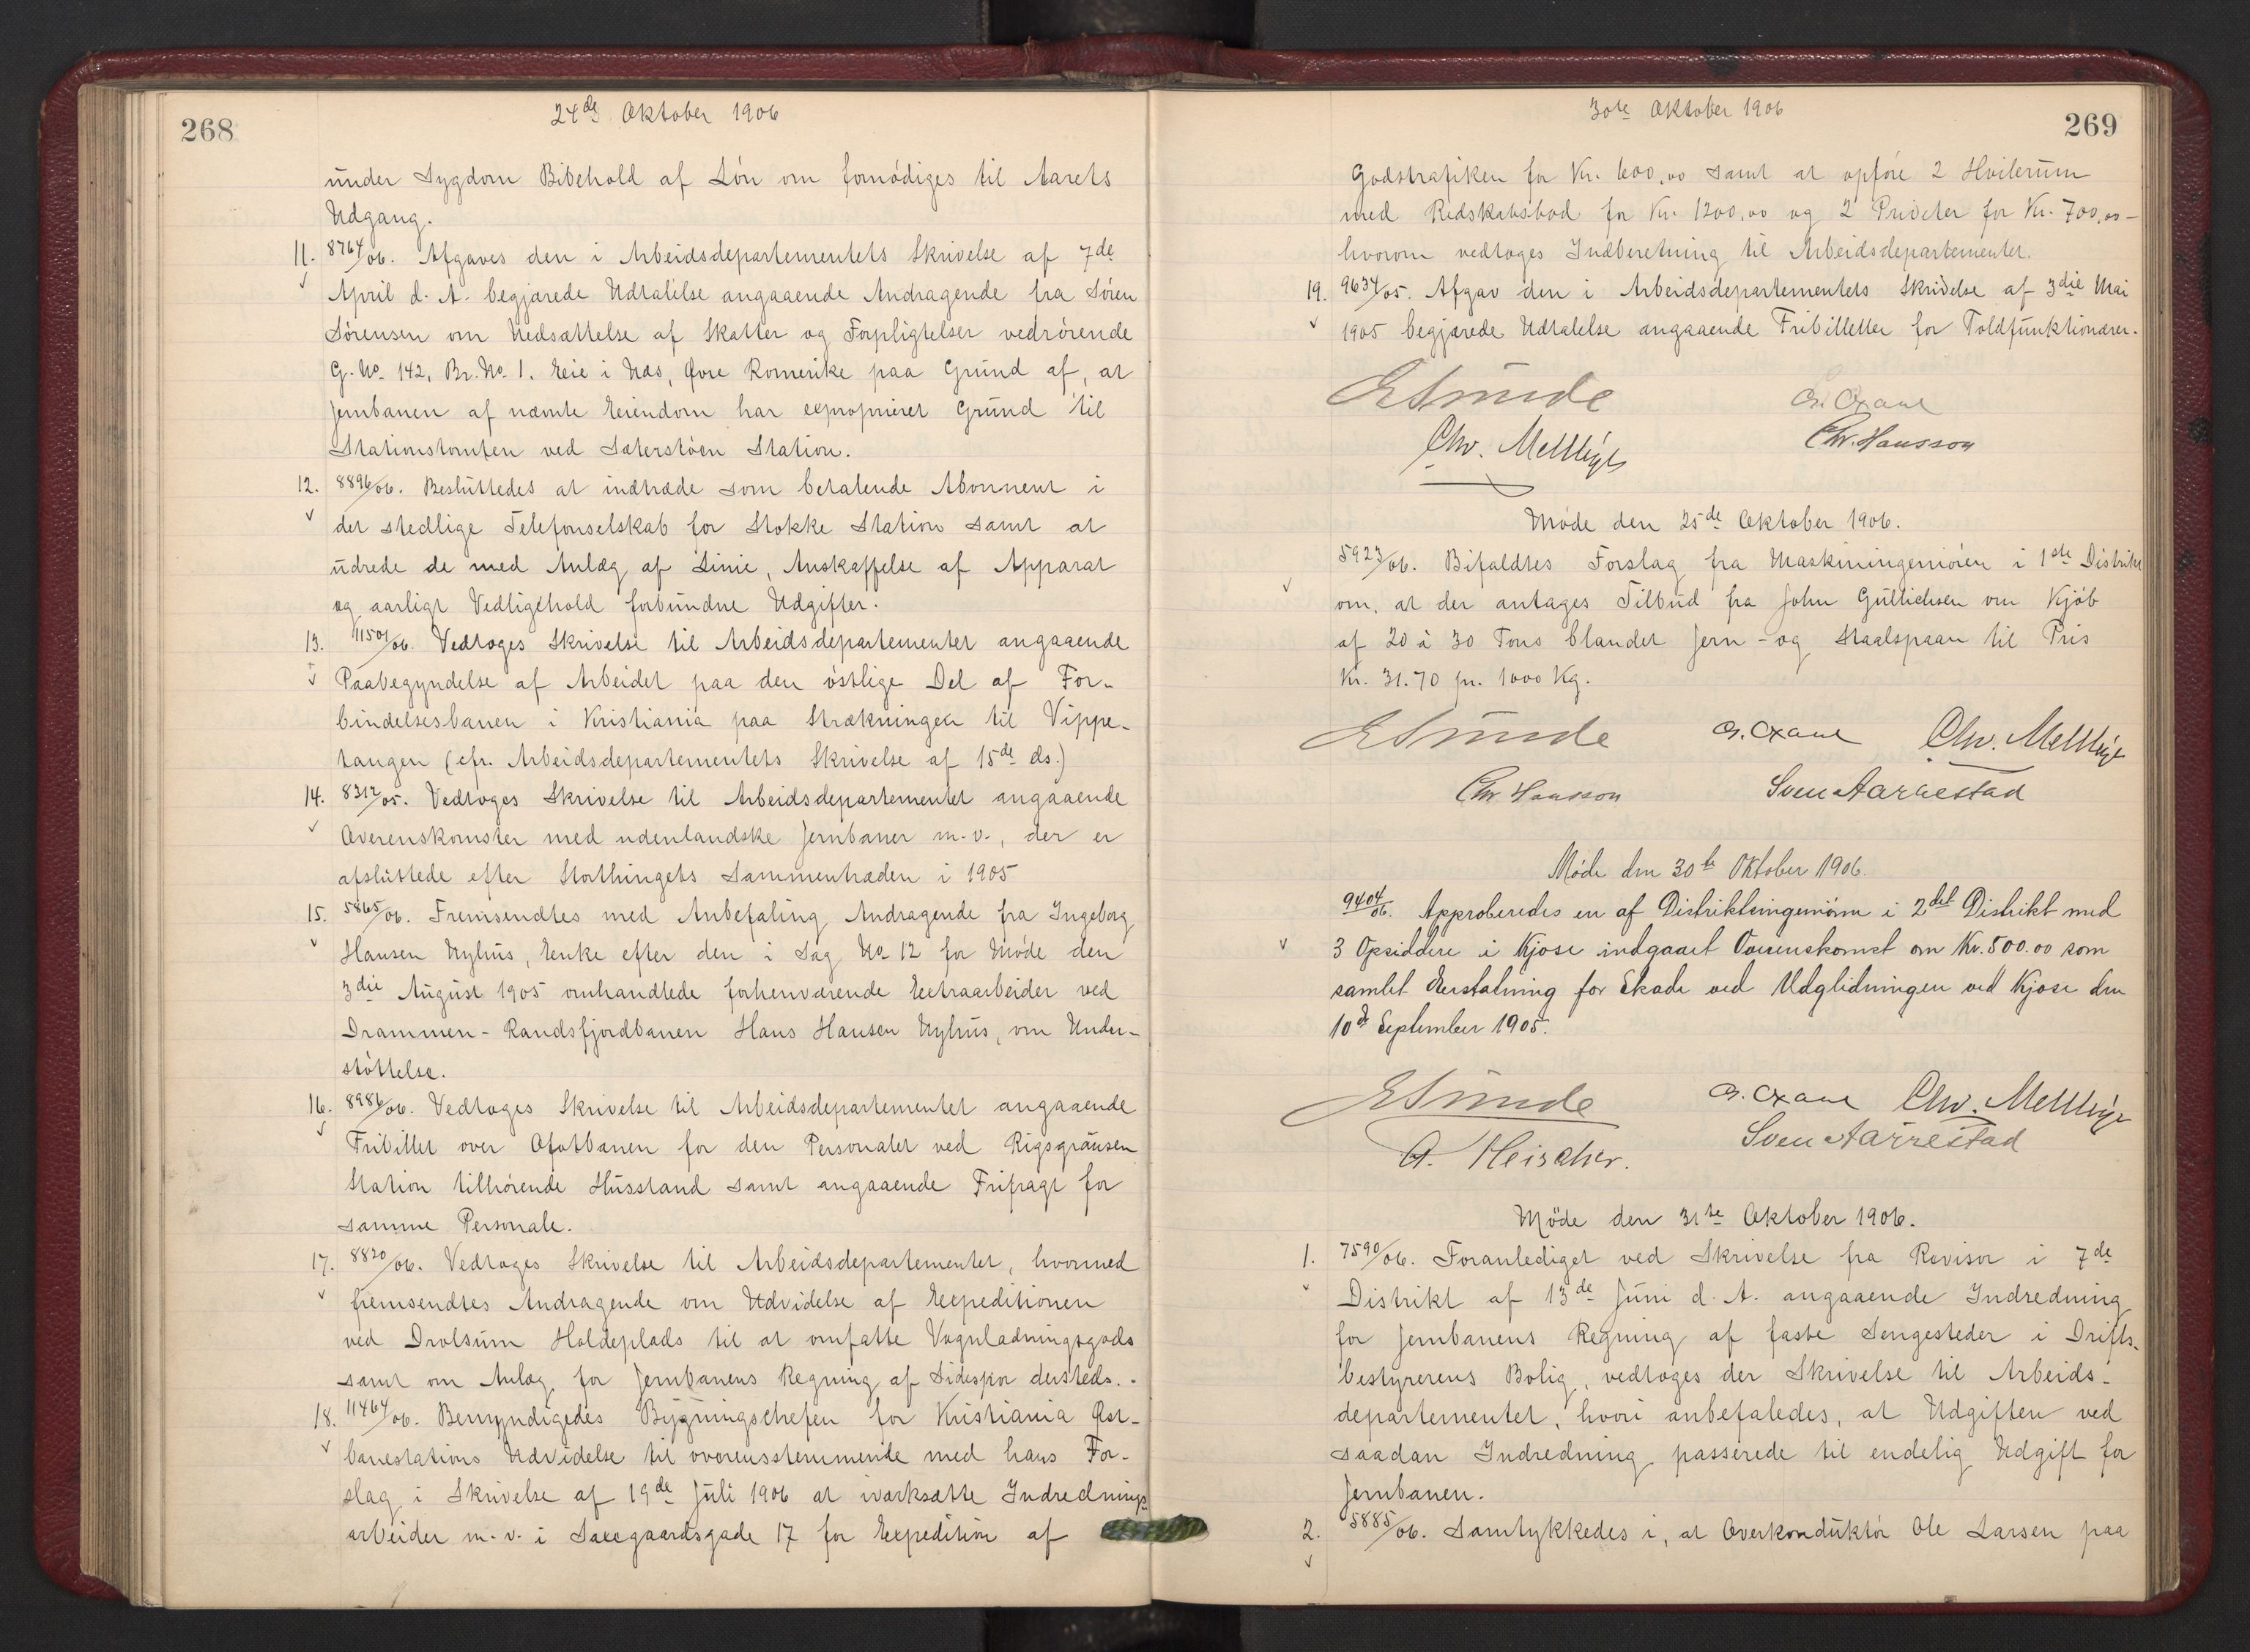 268
24de Oktober 1906
under Sygdom Bibehold af Løn om fornødiges til Aarets
Udgang.
11. 8764/06. Afgaves den i Arbeidsdepartementets Skrivelse af 7de
April d. A. begjærede Udtalelse angaaende Andragende fra Søren
Sørensen om Nedsættelse af Skatter og Forpligtelser vedrørende
G. No. 142, Br. No. 1. Eeie i Næs, Øvre Romerike paa Grund af, at
Jernbanen af nævnte Eiendom har exproprieret Grund til
Stationstomten ved Sæterstøen Station.
12. 8896/06. Besluttedes at indtræde som betalende Abonnent i
det stedlige Telefonselskab for Stokke Station samt at
udrede de med Anlæg af Linie, Anskaffelse af Apparat
og aarligt Vedligehold forbundne Udgifter.
13. 11501/06. Vedtoges Skrivelse til Arbeidsdepartementet angaaende
Paabegyndelse af Arbeidet paa den østlige Del af For-
bindelsesbanen i Kristiania paa Strækningen til Vippe-
tangen (cfr. Arbeidsdepartementets Skrivelse af 15de ds.)
14. 8312/05. Vedtoges Skrivelse til Arbeidsdepartementet angaaende
Overenskomster med udenlandske Jernbaner m.v., der er
afsluttede efter Storthingets Sammentræden i 1905
15. 5865/06. Fremsendtes med Anbefaling Andragende fra Ingeborg
Hansen Nyhus, Enke efter den i Sag No 12 for Møde den
3die August 1905 omhandlede forhenværende Extraarbeider ved
Drammen-Randsfjordbanen Hans Hansen Nyhus, om Under-
støttelse.
16. 8986/06. Vedtoges Skrivelse til Arbeidsdepartementet angaaende
Fribillet over Ofotbanen for den Personalet ved Rigsgränsen
Station tilhørende Husstand samt angaaende Frifragt for
samme Personale.
17. 8820/06. Vedtoges Skrivelse til Arbeidsdepartementet, hvormed
fremsendtes Andragende om Udvidelse af Expeditionen
ved Drolsum Holdeplads til at omfatte Vognladningsgods
samt om Anlæg for Jernbanens Regning af Sidespor dersteds.
18. 11464/06. Bemyndigedes Bygningschefen for Kristiania Øst-
banestations Udvidelse til overensstemmende med hans For-
slag i Skrivelse af 19de Juli 1906 at iværksætte Indrednings
arbeider m.v. i Saxegaardsgade 17 for Expedition af
30te Oktober 1906
269
Godstrafiken for Kr. 600,00 samt at opføre 2 Hvilerum
med Redskabsbod for Kr. 1200,00 og 2 Priveter for Kr. 700,00 -
hvorom vedtoges Indberetning til Arbeidsdepartementet.
19. 9634/05. Afgav den i Arbeidsdepartementets Skrivelse af 3die Mai
1905 begjærede Udtalelse angaaende Fribilletter for Toldfunktionærer.
E Sunde
Chr. Hansson
Møde den 25de Oktober 1906.
5923/06. Bifaldtes Forslag fra Maskiningeniøren i 1ste Distrikt
om, at der antages Tilbud fra John Gullichsen om Kjøb
af 20 à 30 Tons blandet Jern- og Staalspaan til Pris
Kr. 31.70 pr. 1000 Kg.
E Sunde
Chr. Hansson Sven Aarrestad
Møde den 30te Oktober 1906.
9404/06. Approberedes en af Distriktsingeniøren i 2det Distrikt med
3 Opsiddere i Kjose indgaaet Overenskomst om Kr. 500.00 som
samlet Erstatning for Skade ved Udglidningen ved Kjose den
10de September 1905.
E Sunde
Sven Aarrestad
Møde den 31te Oktober 1906.
1. 7590/06. Foranlediget ved Skrivelse fra Revisor i 7de
Distrikt af 13de Juni d. A. angaaende Indredning
for Jernbanens Regning af faste Sengesteder i Drifts-
bestyrerens Bolig, vedtoges der Skrivelse til Arbeids-
departementet, hvori anbefaledes, at Udgiften ved
saadan Indredning passerede til endelig Udgift for
Jernbanen.
2. 5885/06. Samtykkedes i, at Overkonduktør Ole Larsen paa